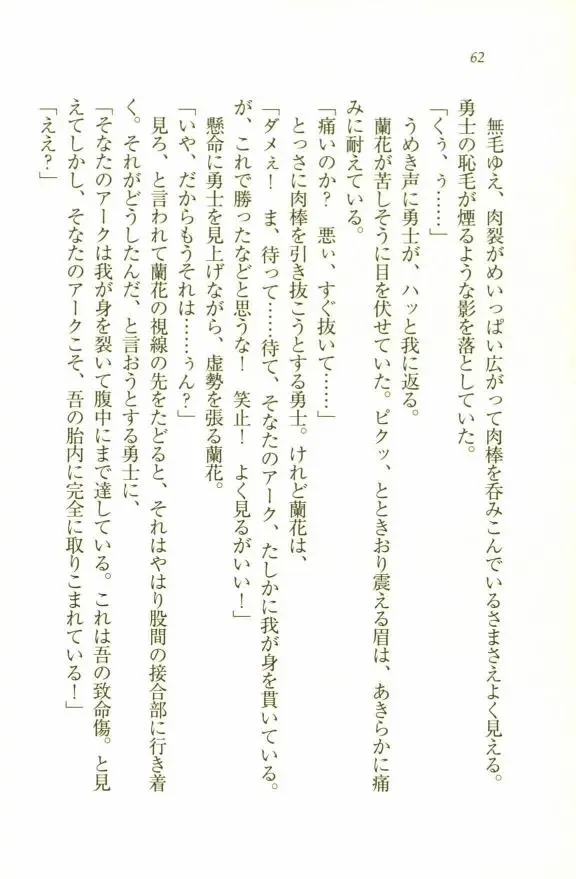 62
無毛ゆえ、肉裂がめいっぱい広がって肉棒を呑みこんでいるさまさえよく見える。
勇士の恥毛が煙るような影を落としていた。
「くぅ、ぅ……」
うめき声に勇士が、ハッと我に返る。
蘭花が苦しそうに目を伏せていた。ピクッ、とときおり震える眉は、あきらかに痛
みに耐えている。
「痛いのか？　悪ぃ、すぐ抜いて……」
とっさに肉棒を引き抜こうとする勇士。けれど蘭花は、
「ダメぇ！　ま、待って……待て、そなたのアーク、たしかに我が身を貫いている。
が、これで勝ったなどと思うな！　笑止！　よく見るがいい！」
懸命に勇士を見上げながら、虚勢を張る蘭花。
「いや、だからもうそれは……ぅん？」
見ろ、と言われて蘭花の視線の先をたどると、それはやはり股間の接合部に行き着
く。それがどうしたんだ、と言おうとする勇士に、
「そなたのアークは我が身を裂いて腹中にまで達している。これは吾の致命傷。と見
えてしかし、そなたのアークこそ、吾の胎内に完全に取りこまれている！」
「ええ？」